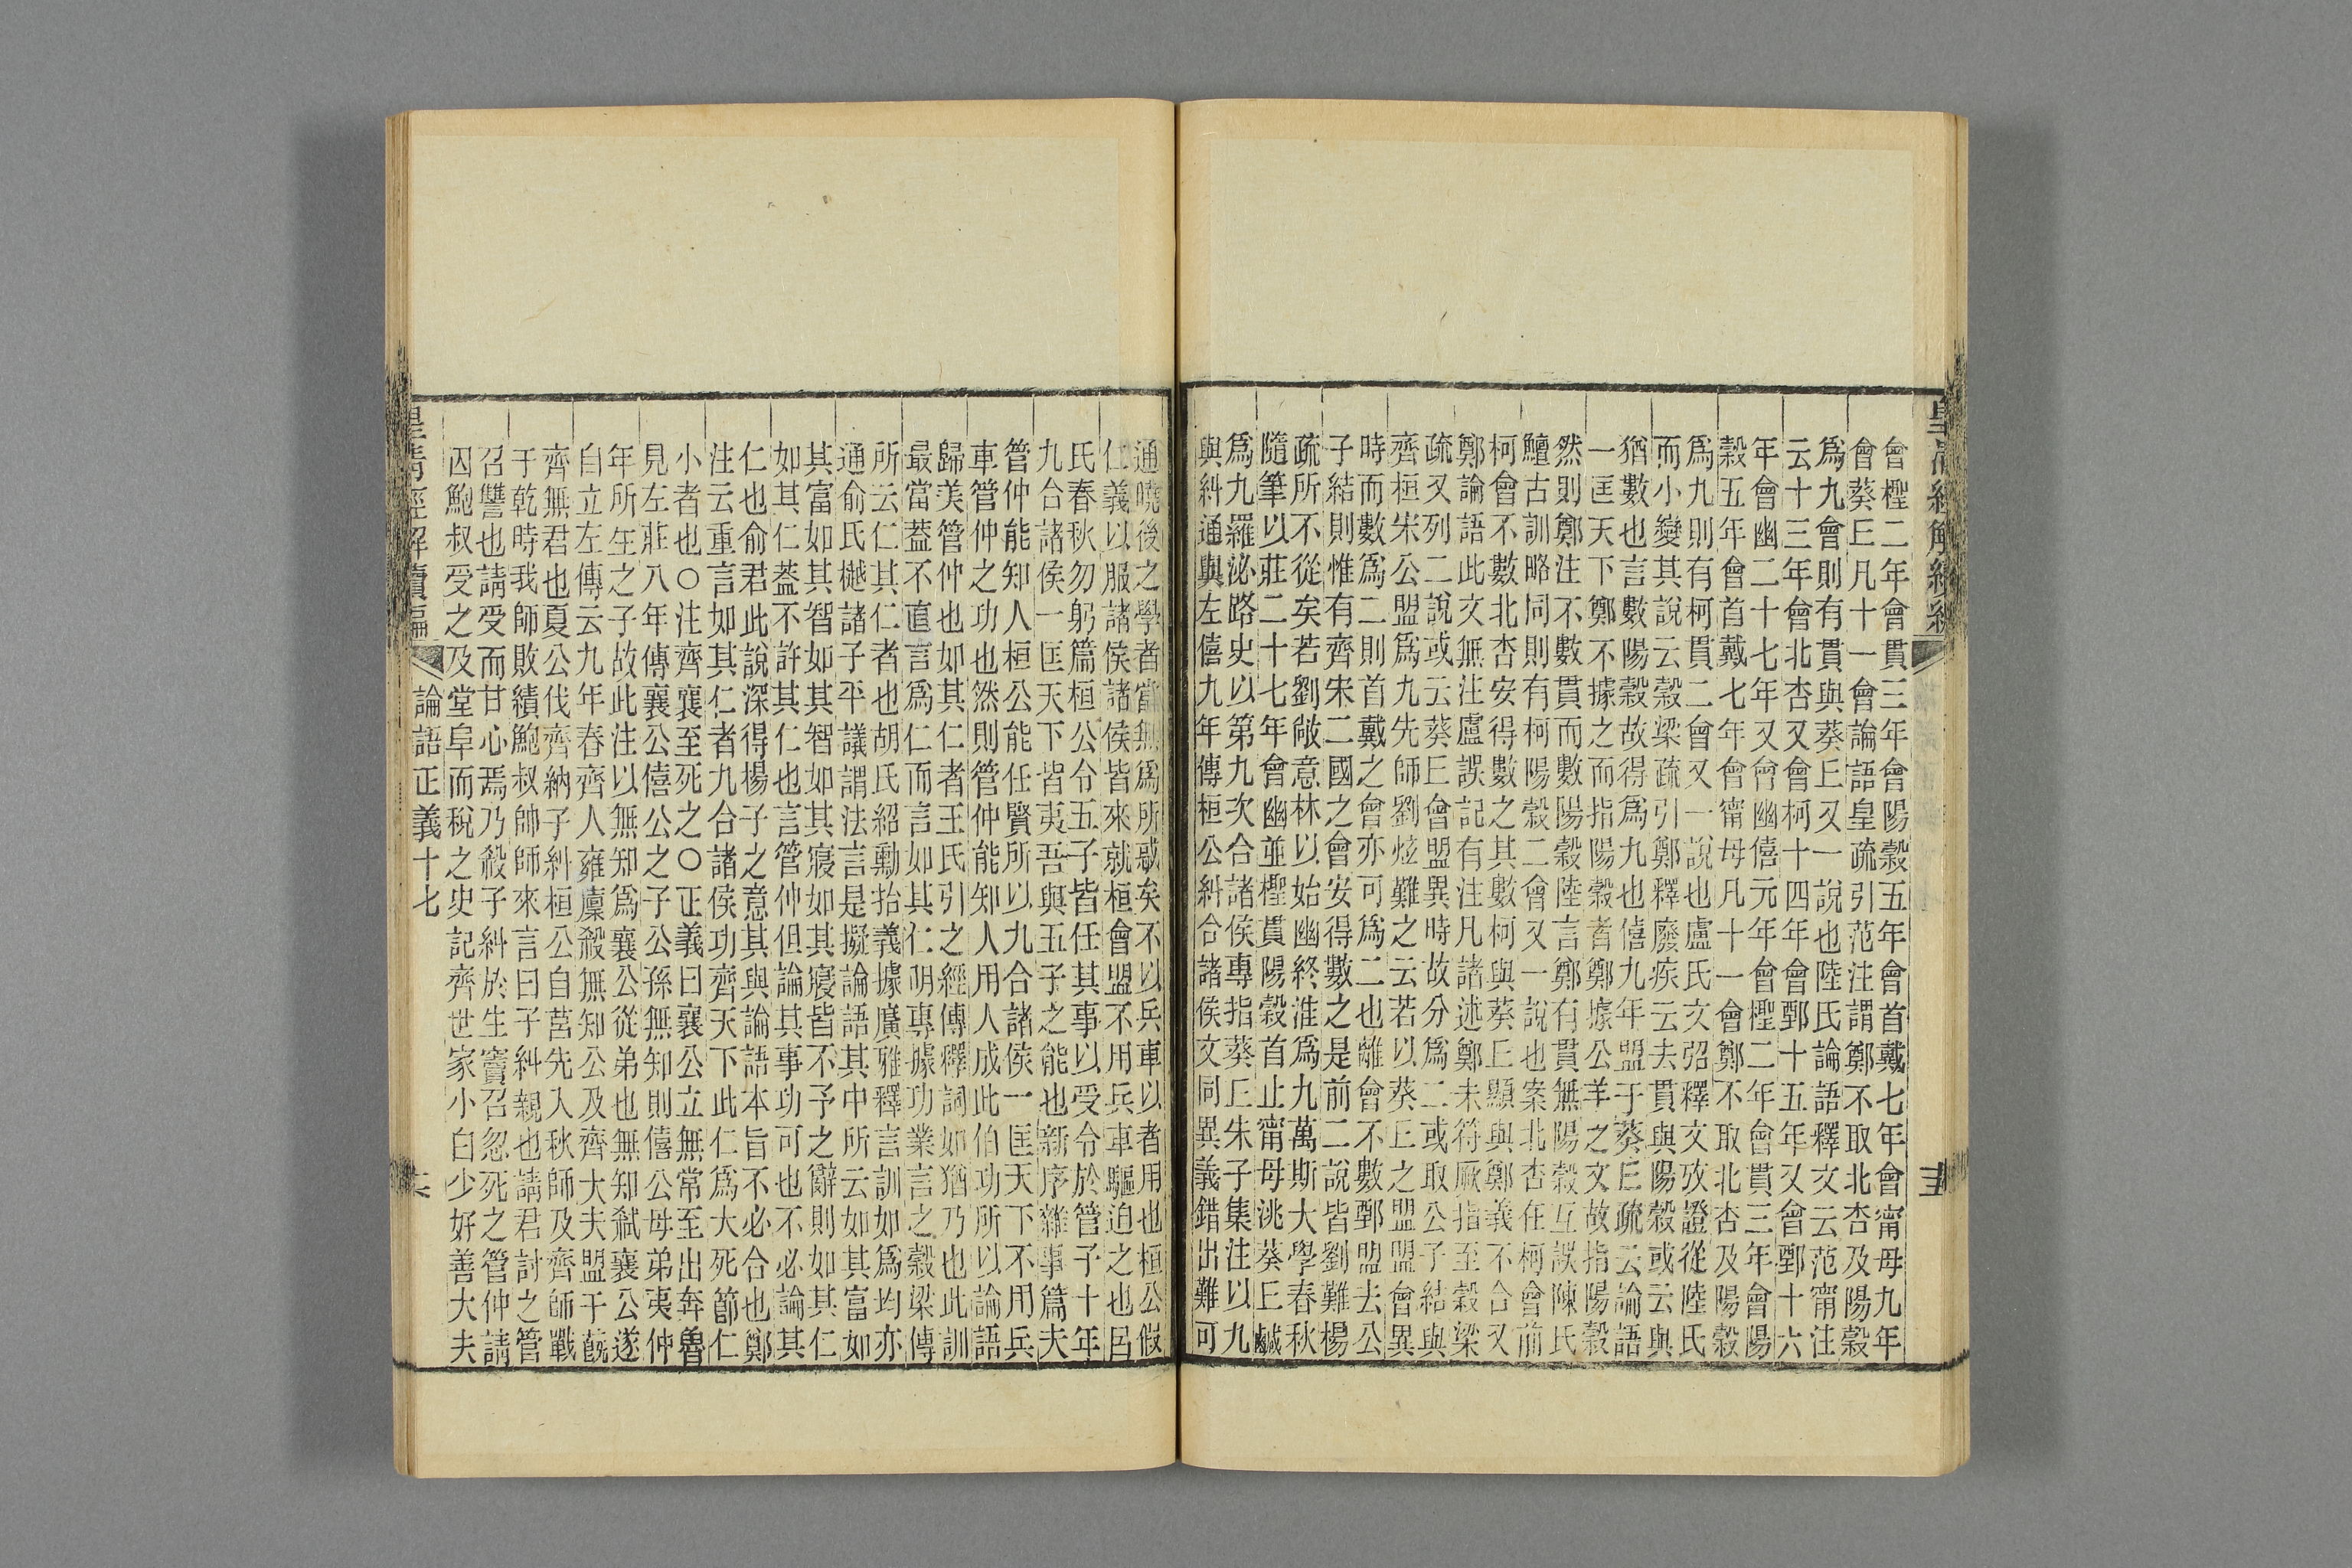 皇清經解續編
會檉二年會貫三年會陽穀五年會首戴七年會甯母九年
會葵丘凡十一會論語皇疏引范注謂鄭不取北杏及陽穀
爲九會則有貫與葵丘又一說也陸氏論語釋文云范甯注
云十三年會北杏又會柯十四年會鄄十五年又會鄄十六
年會幽二十七年又會幽僖元年會檉二年會貫三年會陽
穀五年會首戴七年會甯母凡十一會鄭不取北杏及陽穀
爲九則有柯貫二會又一說也盧氏文弨釋文攷證從陸氏
而小變其說云穀梁疏引鄭釋廢疾云去貫與陽穀或云與
猶數也言數陽穀故得爲九也僖九年盟于葵丘疏云論語
一匡天下鄭不據之而指陽穀者鄭據公羊之文故指陽穀
然則鄭注不數貫而數陽穀陸言鄭有貫無陽穀互誤陳氏
鱣古訓略同則有柯陽穀二會又一說也案北杏在柯會前
柯會不數北杏安得數之其數柯與葵丘顯與鄭義不合又
鄭論語此文無注盧誤記有注凡諸述鄭未符厥指至穀梁
疏又列二說或云葵丘會盟異時故分爲二或取公子結與
齊桓宋公盟爲九先師劉炫難之云若以葵丘之盟盟會異
時而數爲二則首戴之會亦可爲二也離會不數鄄盟去公
子結則惟有齊宋二國之會安得數之是前二說皆劉難楊
疏所不從矣若劉敞意林以始幽終淮爲九萬斯大學春秋
隨筆以莊二十七年會幽並檉貫陽穀首止甯母洮葵丘鹹
爲九羅泌路史以第九次合諸侯專指葵丘朱子集注以九
與糾通與左僖九年傳桓公糾合諸侯文同異義錯出難可
通曉後之學者當無爲所惑矣不以兵車以者用也桓公假
仁義以服諸侯諸侯皆來就桓會盟不用兵車驅迫之也呂
氏春秋勿躬篇桓公令五子皆任其事以受令於管子十年
九合諸侯一匡天下皆夷吾與五子之能也新序雜事篇夫
管仲能知人桓公能任賢所以九合諸侯一匡天下不用兵
車管仲之功也然則管仲能知人用人成此伯功所以論語
歸美管仲也如其仁者王氏引之經傳釋詞如猶乃也此訓
最當蓋不直言爲仁而言如其仁明專據功業言之穀梁傳
所云仁其仁者也胡氏紹勳拾義據廣雅釋言訓如爲均亦
通俞氏樾諸子平議謂法言是擬論語其中所云如其富如
其富如其智如其智如其寢如其寢皆不予之辭則如其仁
如其仁蓋不許其仁也言管仲但論其事功可也不必論其
仁也俞君此說深得楊子之意其與論語本旨不必合也鄭
注云重言如其仁者九合諸侯功齊天下此仁爲大死節仁
小者也〇注齊襄至死之〇正義曰襄公立無常至出奔魯
見左莊八年傳襄公僖公之子公孫無知則僖公母弟夷仲
年所生之子故此注以無知爲襄公從弟也無知弒襄公遂
自立左傳云九年春齊人雍廩殺無知公及齊大夫盟于蔇
齊無君也夏公伐齊納子糾桓公自莒先入秋師及齊師戰
于乾時我師敗績鮑叔帥師來言曰子糾親也請君討之管
召讐也請受而甘心焉乃殺子糾於生竇召忽死之管仲請
囚鮑叔受之及堂阜而稅之史記齊世家小白少好善大夫
皇清經解續編
論語正義十七